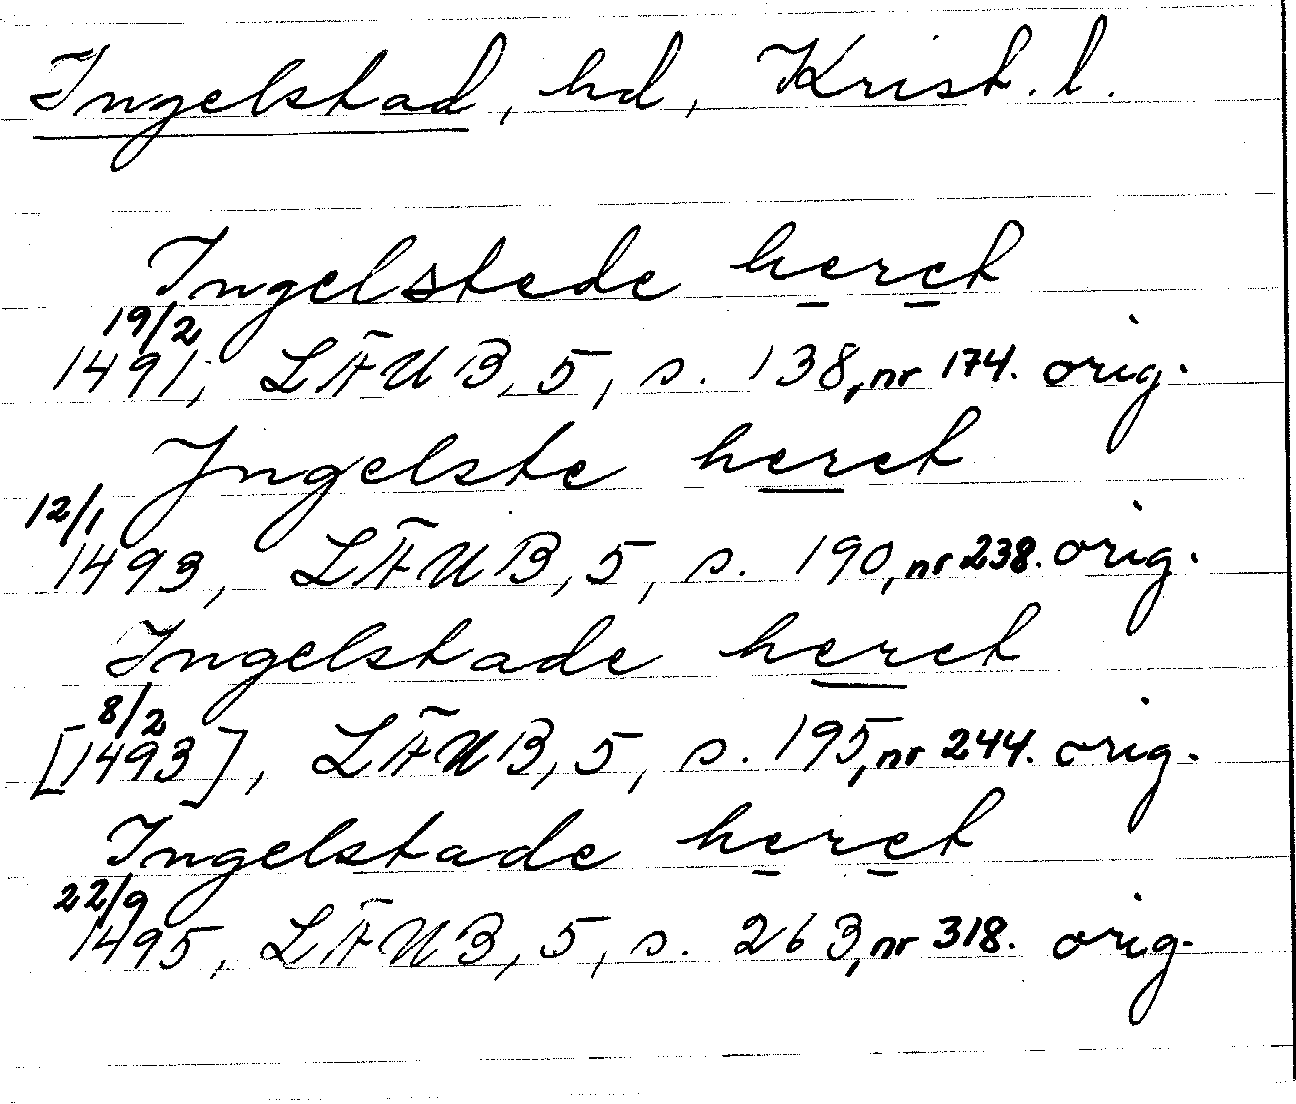 Ingelstad, hd, Krist. l.
Ingelstede heret
19/2
1491, LÄUB, 5, s. 138, nr 174. orig.
Jngelste heret
12/1
1493, LÄUB, 5, s. 190, nr 238. orig.
Ingelstade heret
8/2
[1493], LÄUB, 5, s. 195, nr 244. orig.
Ingelstade heret
22/9
1495, LÄUB, 5, s. 263, nr 318. orig.